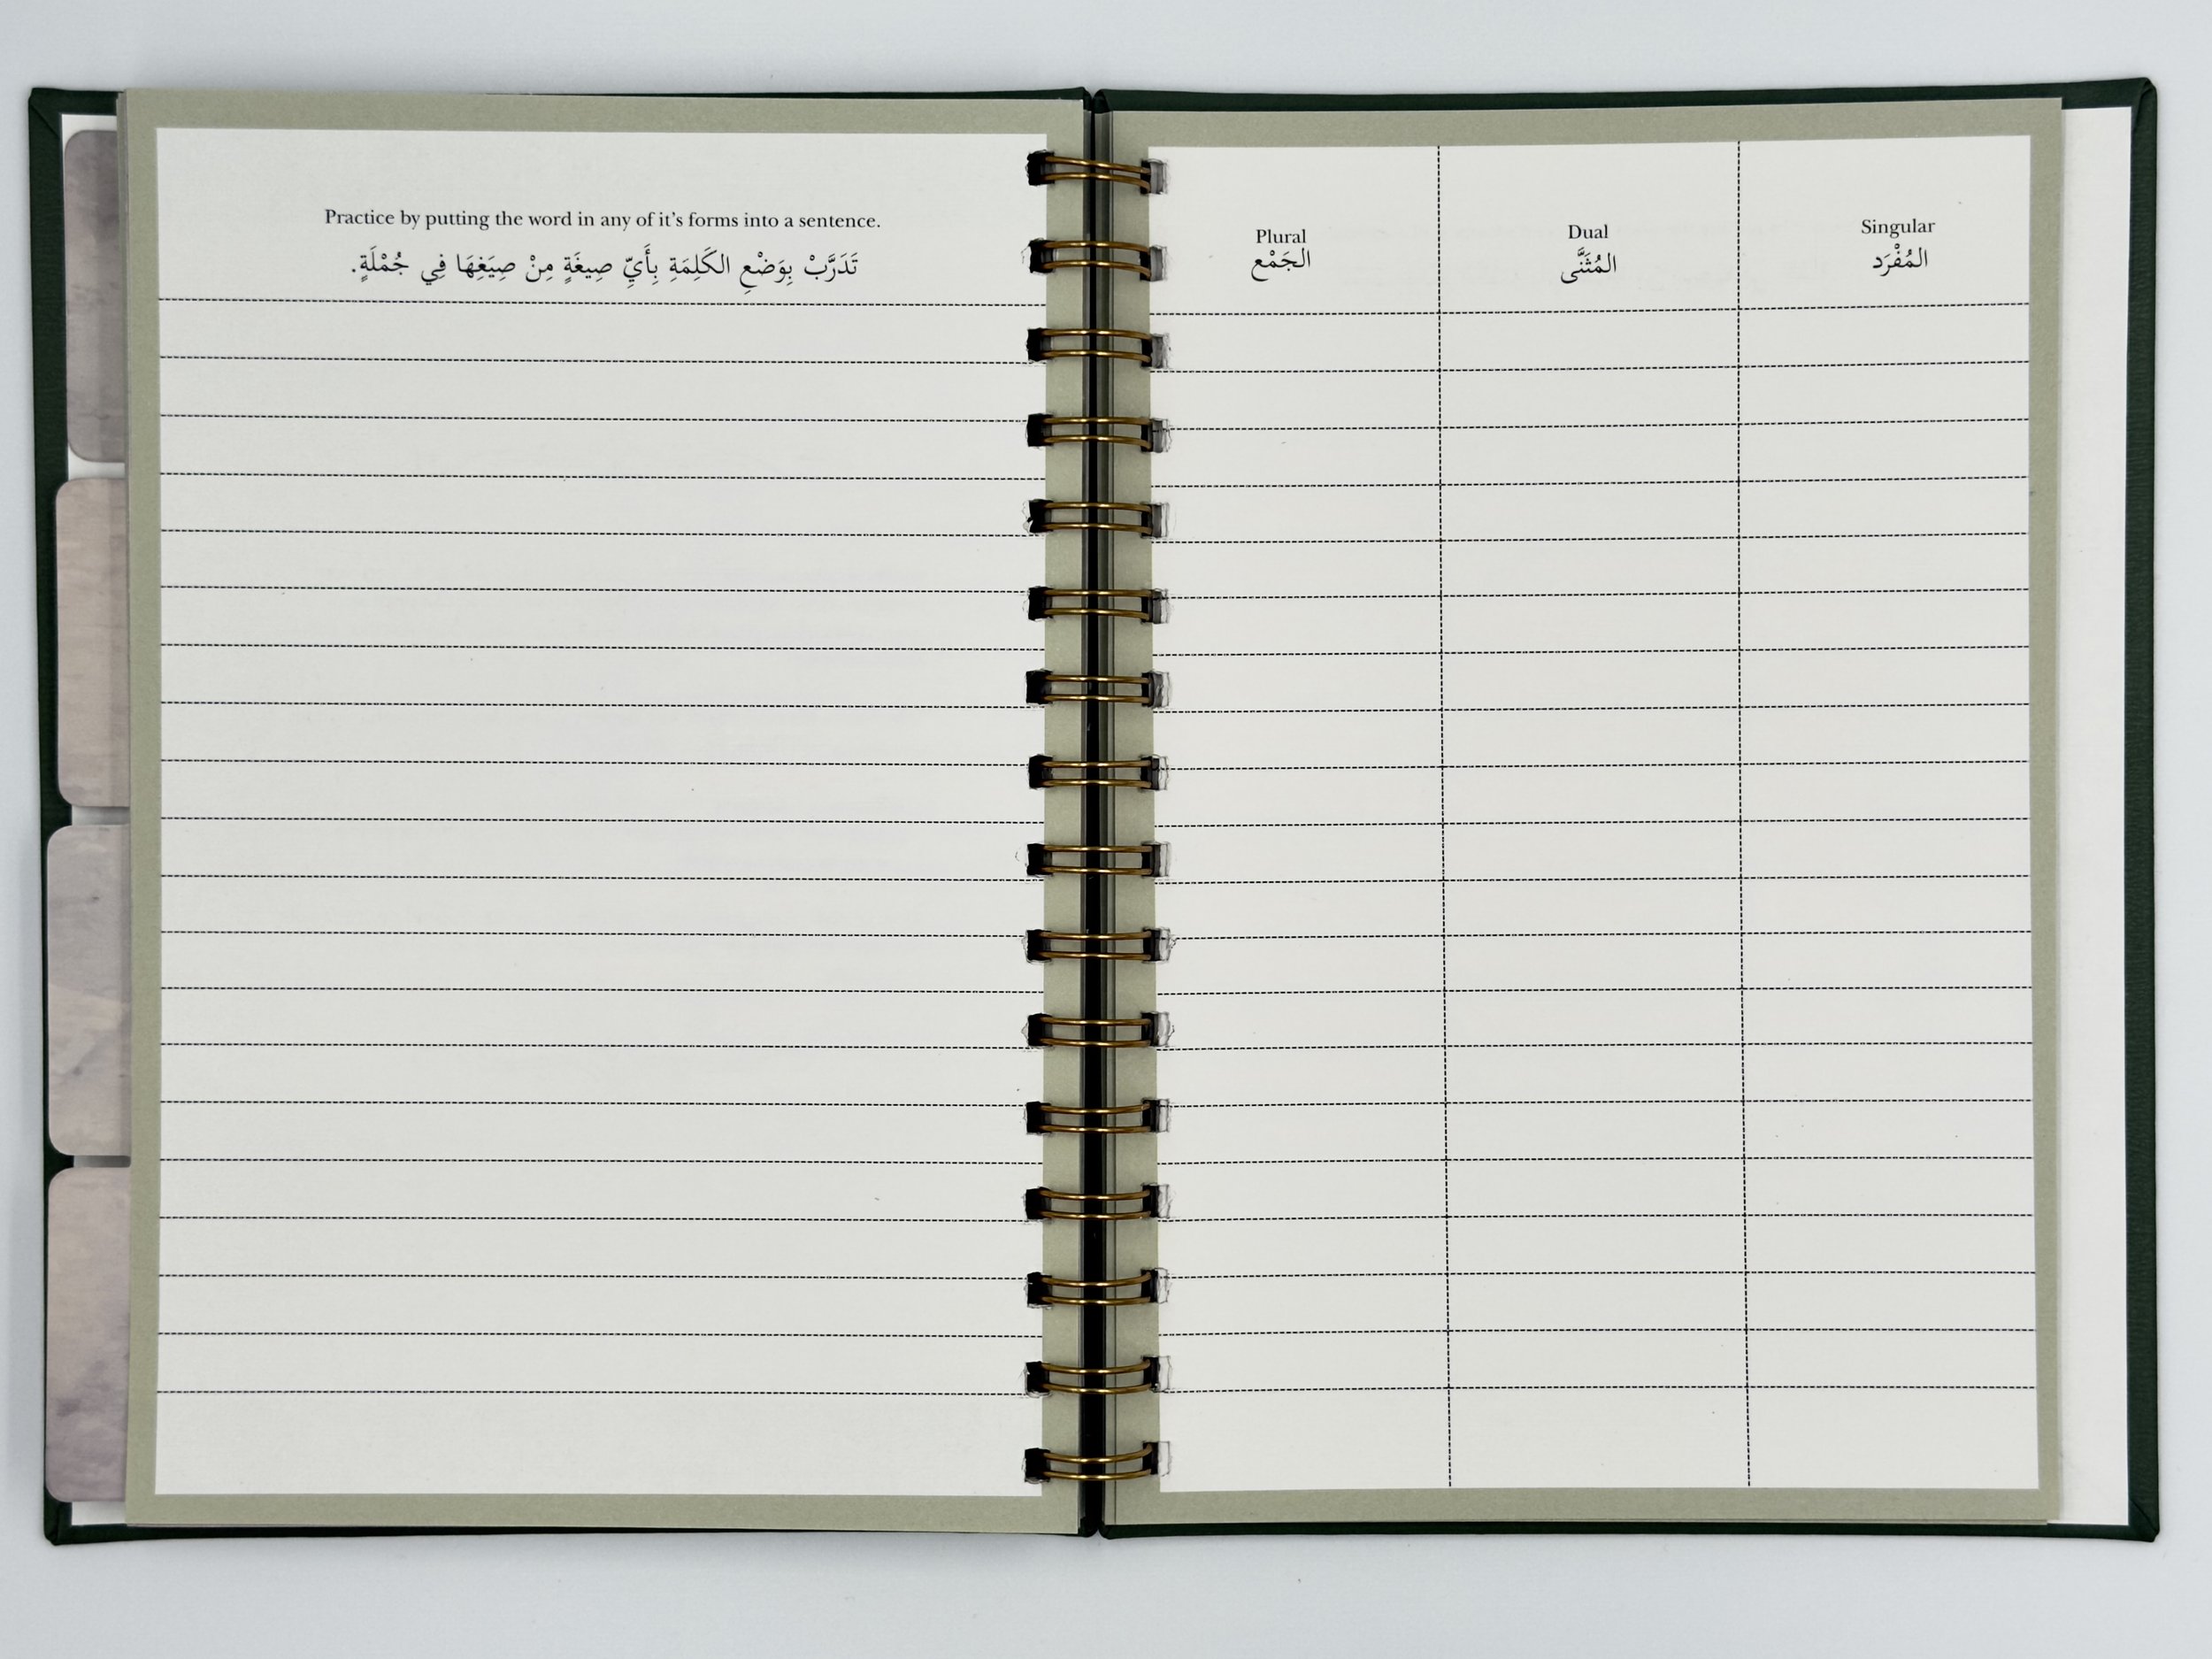 Practice by putting the word in any of it's forms into a sentence.
تَدَرَّبْ بِوَضْعِ الكَلِمَةِ بِأَيِّ صِيغَةٍ مِنْ صِيَغِهَا فِي جُمْلَةٍ.
Singular
المُفْرَد
Dual
المُثَنَّى
Plural
الجَمْع